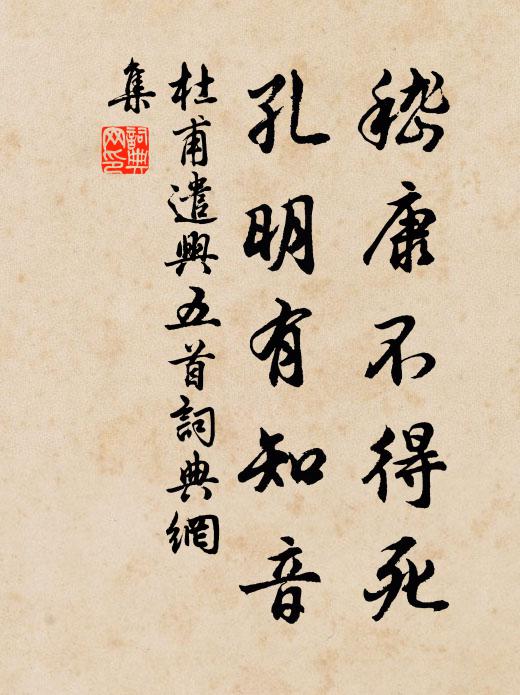 嵇康不得死
孔明有知音
杜甫遣興五首詞典網
集
詞典
网印